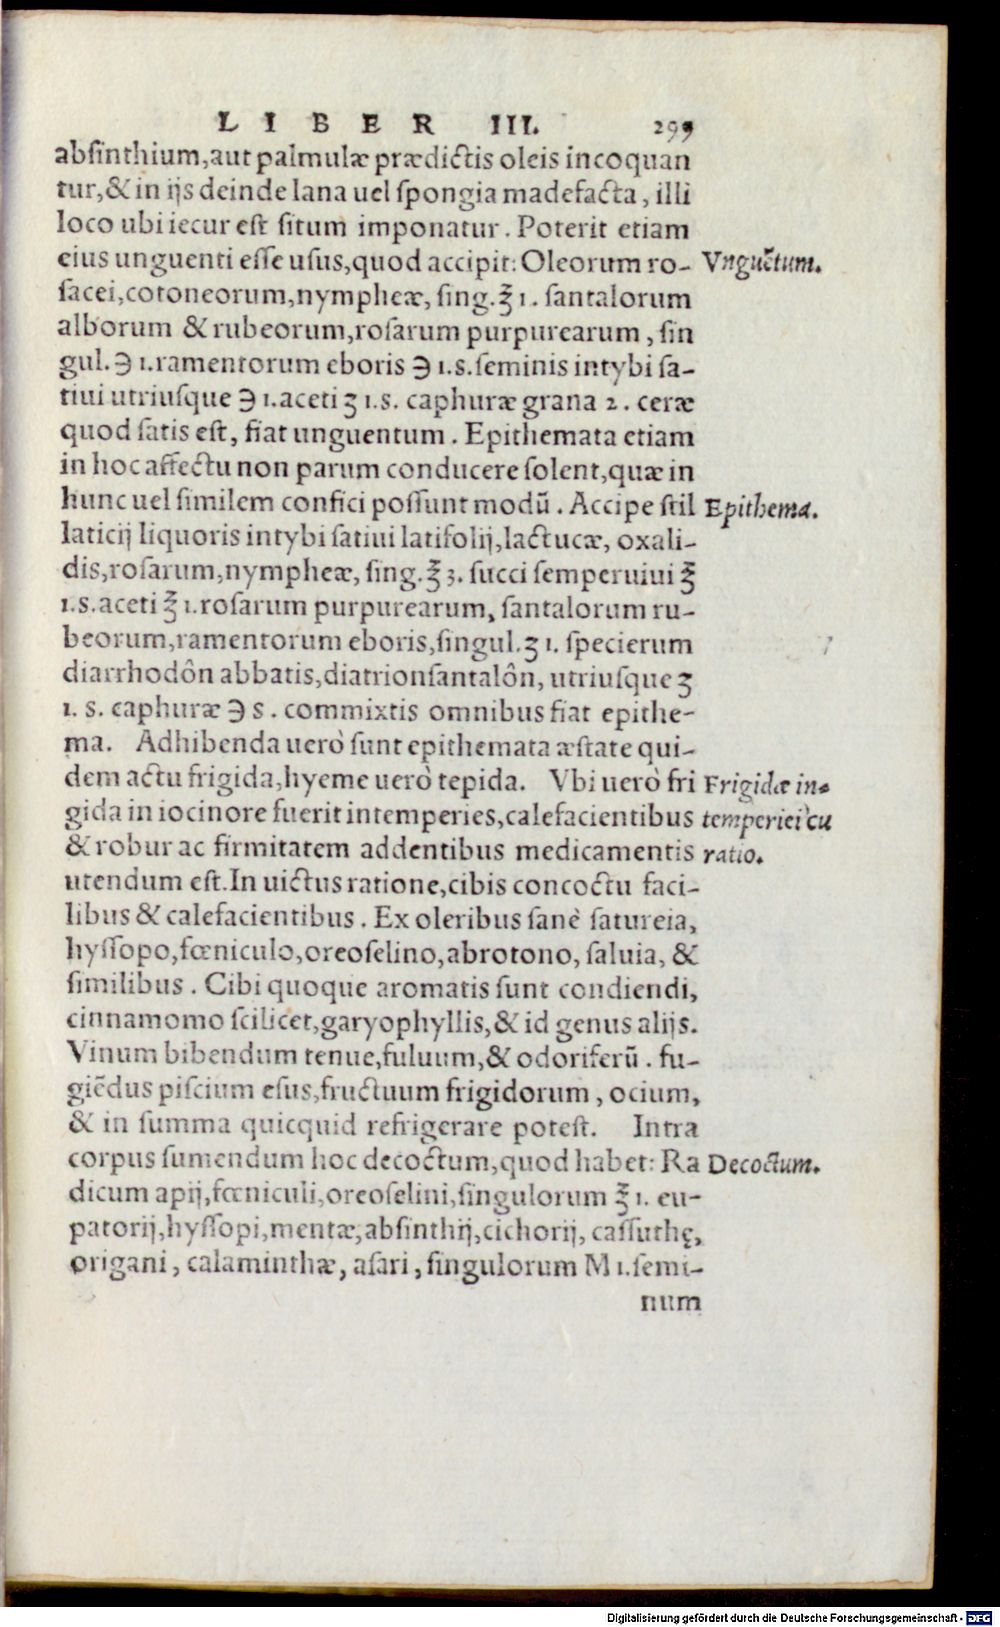 LIBER III. 299
absinthium,aut palmulæ prædictis oleis incoquan
tur,& in ijs deinde lana uel spongia madefacta, illi
loco ubi iecur est situm imponatur. Poterit etiam
eius unguenti esse usus,quod accipit: Oleorum ro- Vnguẽtum.
sacei,cotoneorum,nympheæ, sing.℥ 1. santalorum
alborum & rubeorum,rosarum purpurearum, sin
gul. ℈ 1.ramentorum eboris ℈ 1.s.seminis intybi sa-
tiui utriusque ℈ 1.aceti ʒ 1.s. caphuræ grana 2. ceræ
quod satis est, fiat unguentum. Epithemata etiam
in hoc affectu non parum conducere solent,quæ in
hunc uel similem confici possunt modũ. Accipe stil Epithema.
laticij liquoris intybi satiui latifolij,lactucæ, oxali-
dis,rosarum,nympheæ, sing.℥ 3. succi semperuiui ℥
1.s.aceti ℥ 1.rosarum purpurearum, santalorum ru-
beorum,ramentorum eboris,singul.ʒ 1. specierum
diarrhodôn abbatis,diatrionsantalôn, utriusque ʒ
1. s. caphuræ ℈ s. commixtis omnibus fiat epithe-
ma. Adhibenda uerò sunt epithemata æstate qui-
dem actu frigida,hyeme uerò tepida. Vbi uerò fri Frigidæ in-
gida in iocinore fuerit intemperies,calefacientibus temperiei cu
& robur ac firmitatem addentibus medicamentis ratio.
utendum est.In uictus ratione,cibis concoctu faci-
libus & calefacientibus. Ex oleribus sanè satureia,
hyssopo,fœniculo,oreoselino,abrotono, saluia, &
similibus. Cibi quoque aromatis sunt condiendi,
cinnamomo scilicet,garyophyllis,& id genus alijs.
Vinum bibendum tenue,fuluum,& odoriferũ. fu-
giẽdus piscium esus,fructuum frigidorum, ocium,
& in summa quicquid refrigerare potest. Intra
corpus sumendum hoc decoctum,quod habet: Ra Decoctum.
dicum apij,fœniculi,oreoselini,singulorum ℥ 1. eu-
patorij,hyssopi,mentæ,absinthij,cichorij, cassuthę,
origani, calaminthæ, asari, singulorum M 1.semi-
num
Digitalisierung gefördert durch die Deutsche Forschungsgemeinschaft - DFG